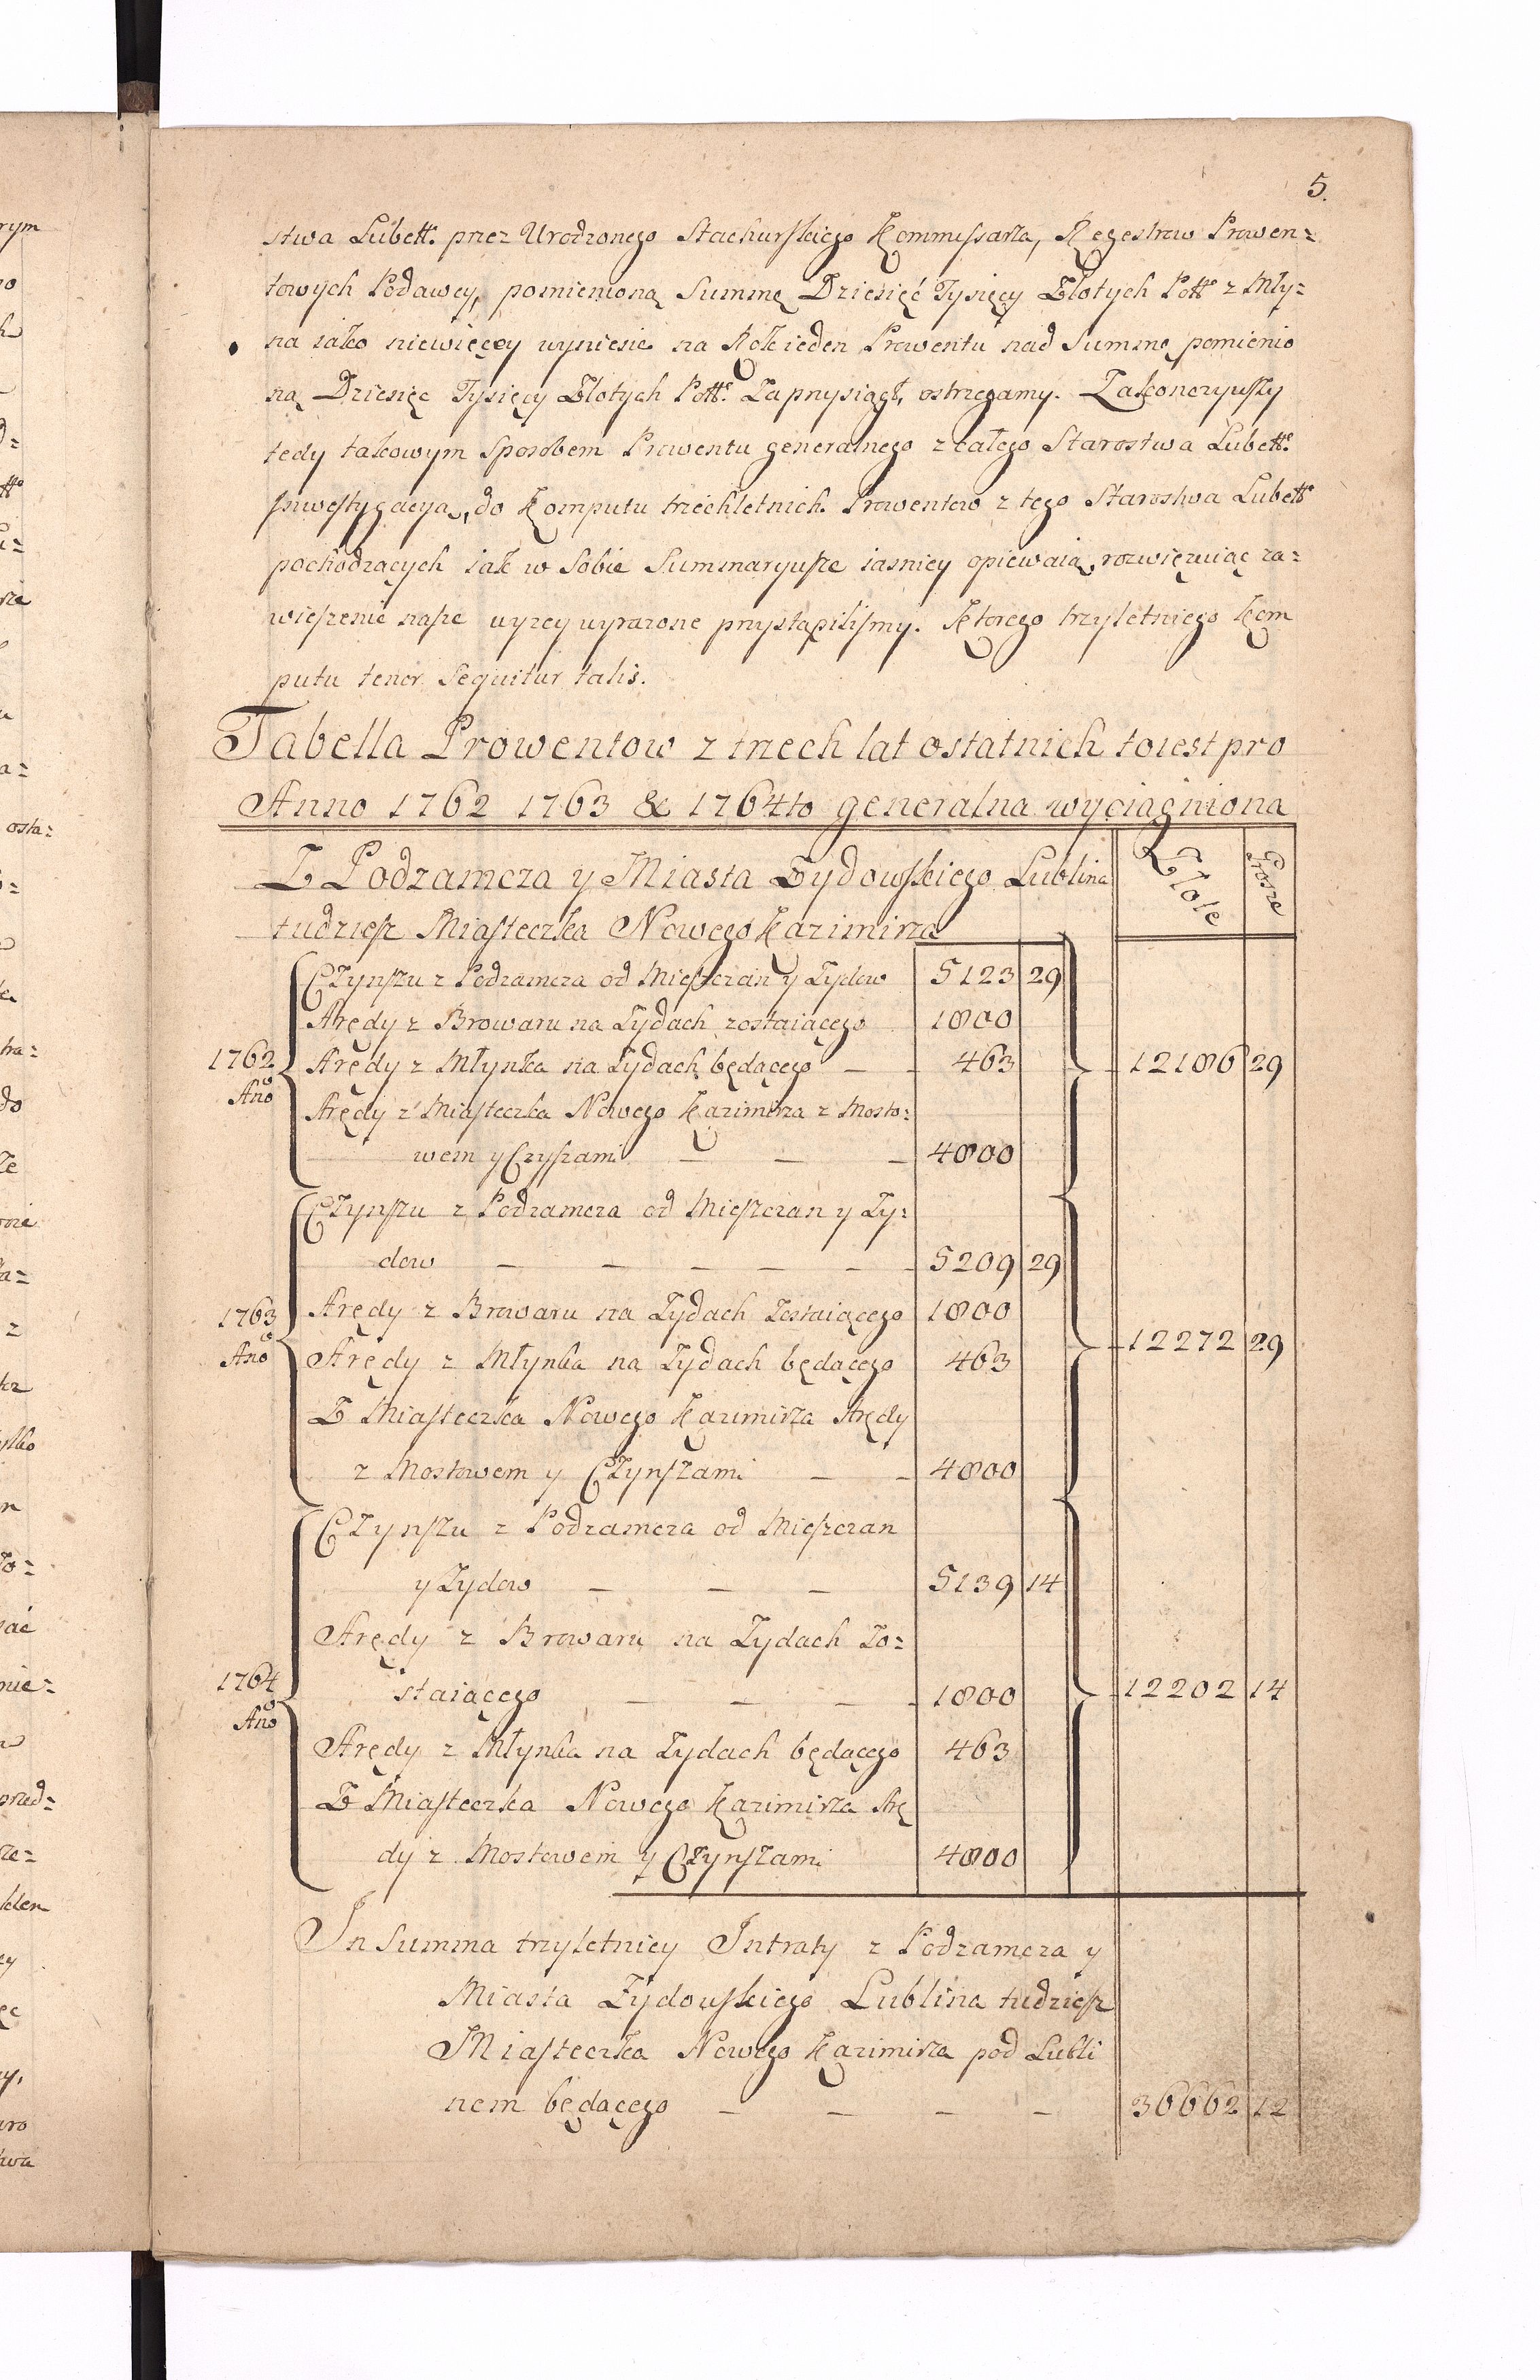 5.
stwa Lubett. przez Urodzonego Stachurskiego Kommissarza, Regestrow Prowen=
towych Podawcy, pomienioną Summę Dziesięć Tysięcy Złotych Poll. z Mły=
na iako niewięcey wyniesie na Rok ieden Prowentu nad Summę pomienio
ną Dziesięc Tysięcy Złotych Poll. Zaprzysiągł, ostrzegamy. Zakonczywszy
tedy takowym Sposobem Prowentu generalnego z całego Starostwa Lubett.
Inwestygacyą, do Komputu trzechletnich Prowentow z tego Starostwa Lubett
pochodzących iak w Sobie Summaryusze iasniey opiewaią, rozwięzuiąc za=
wieszenie nasze wyzey wyrazone przystąpilismy. Ktorego trzyletniego Kom
putu tenor Sequitur talis.
Tabella Prowentow z trzech lat ostatnich toiest pro
Anno 1762 1763 & 1764to generalna wyciągniona
Z Podzamcza y Miasta Zydowskiego Lublina Złote Grosze
tudziesz Miasteczka Nowego Kazimirza
Czynszu z Podzamcza od Mieszczan y Zydow 5123 29
Arędy z Browaru na Zydach zostaiącego 1800
1762 Arędy z Młynka na Zydach będącego 463 12186 29
Ano Arędy z Miasteczka Nowego Kazimirza z Mosto=
wem y Czyszami 4800
Czynszu z Podzamcza od Mieszczan y Zy=
dow 5209 29
1763 Arędy z Browaru na Zydach Zostaiącego 1800
Ano Arędy z Młynka na Zydach będącego 463 12272 29
Z Miasteczka Nowego Kazimirza Arędy
z Mostowem y Czynszami 4800
Czynszu z Podzamcza od Mieszczan
y Zydow 5139 14
Arędy z Browaru na Zydach Zo=
1764 staiącego 1800 12202 14
Ano
Arędy z Młynka na Zydach będącego 463
Z Miasteczka Nowego Kazimirza Arę
dy z Mostowem y Czynszami 4800
In Summa trzyletniey Intraty z Podzamcza y
Miasta Zydowskiego Lublina tudziesz
Miasteczka Nowego Kazimirza pod Lubli
nem będącego 36662 12